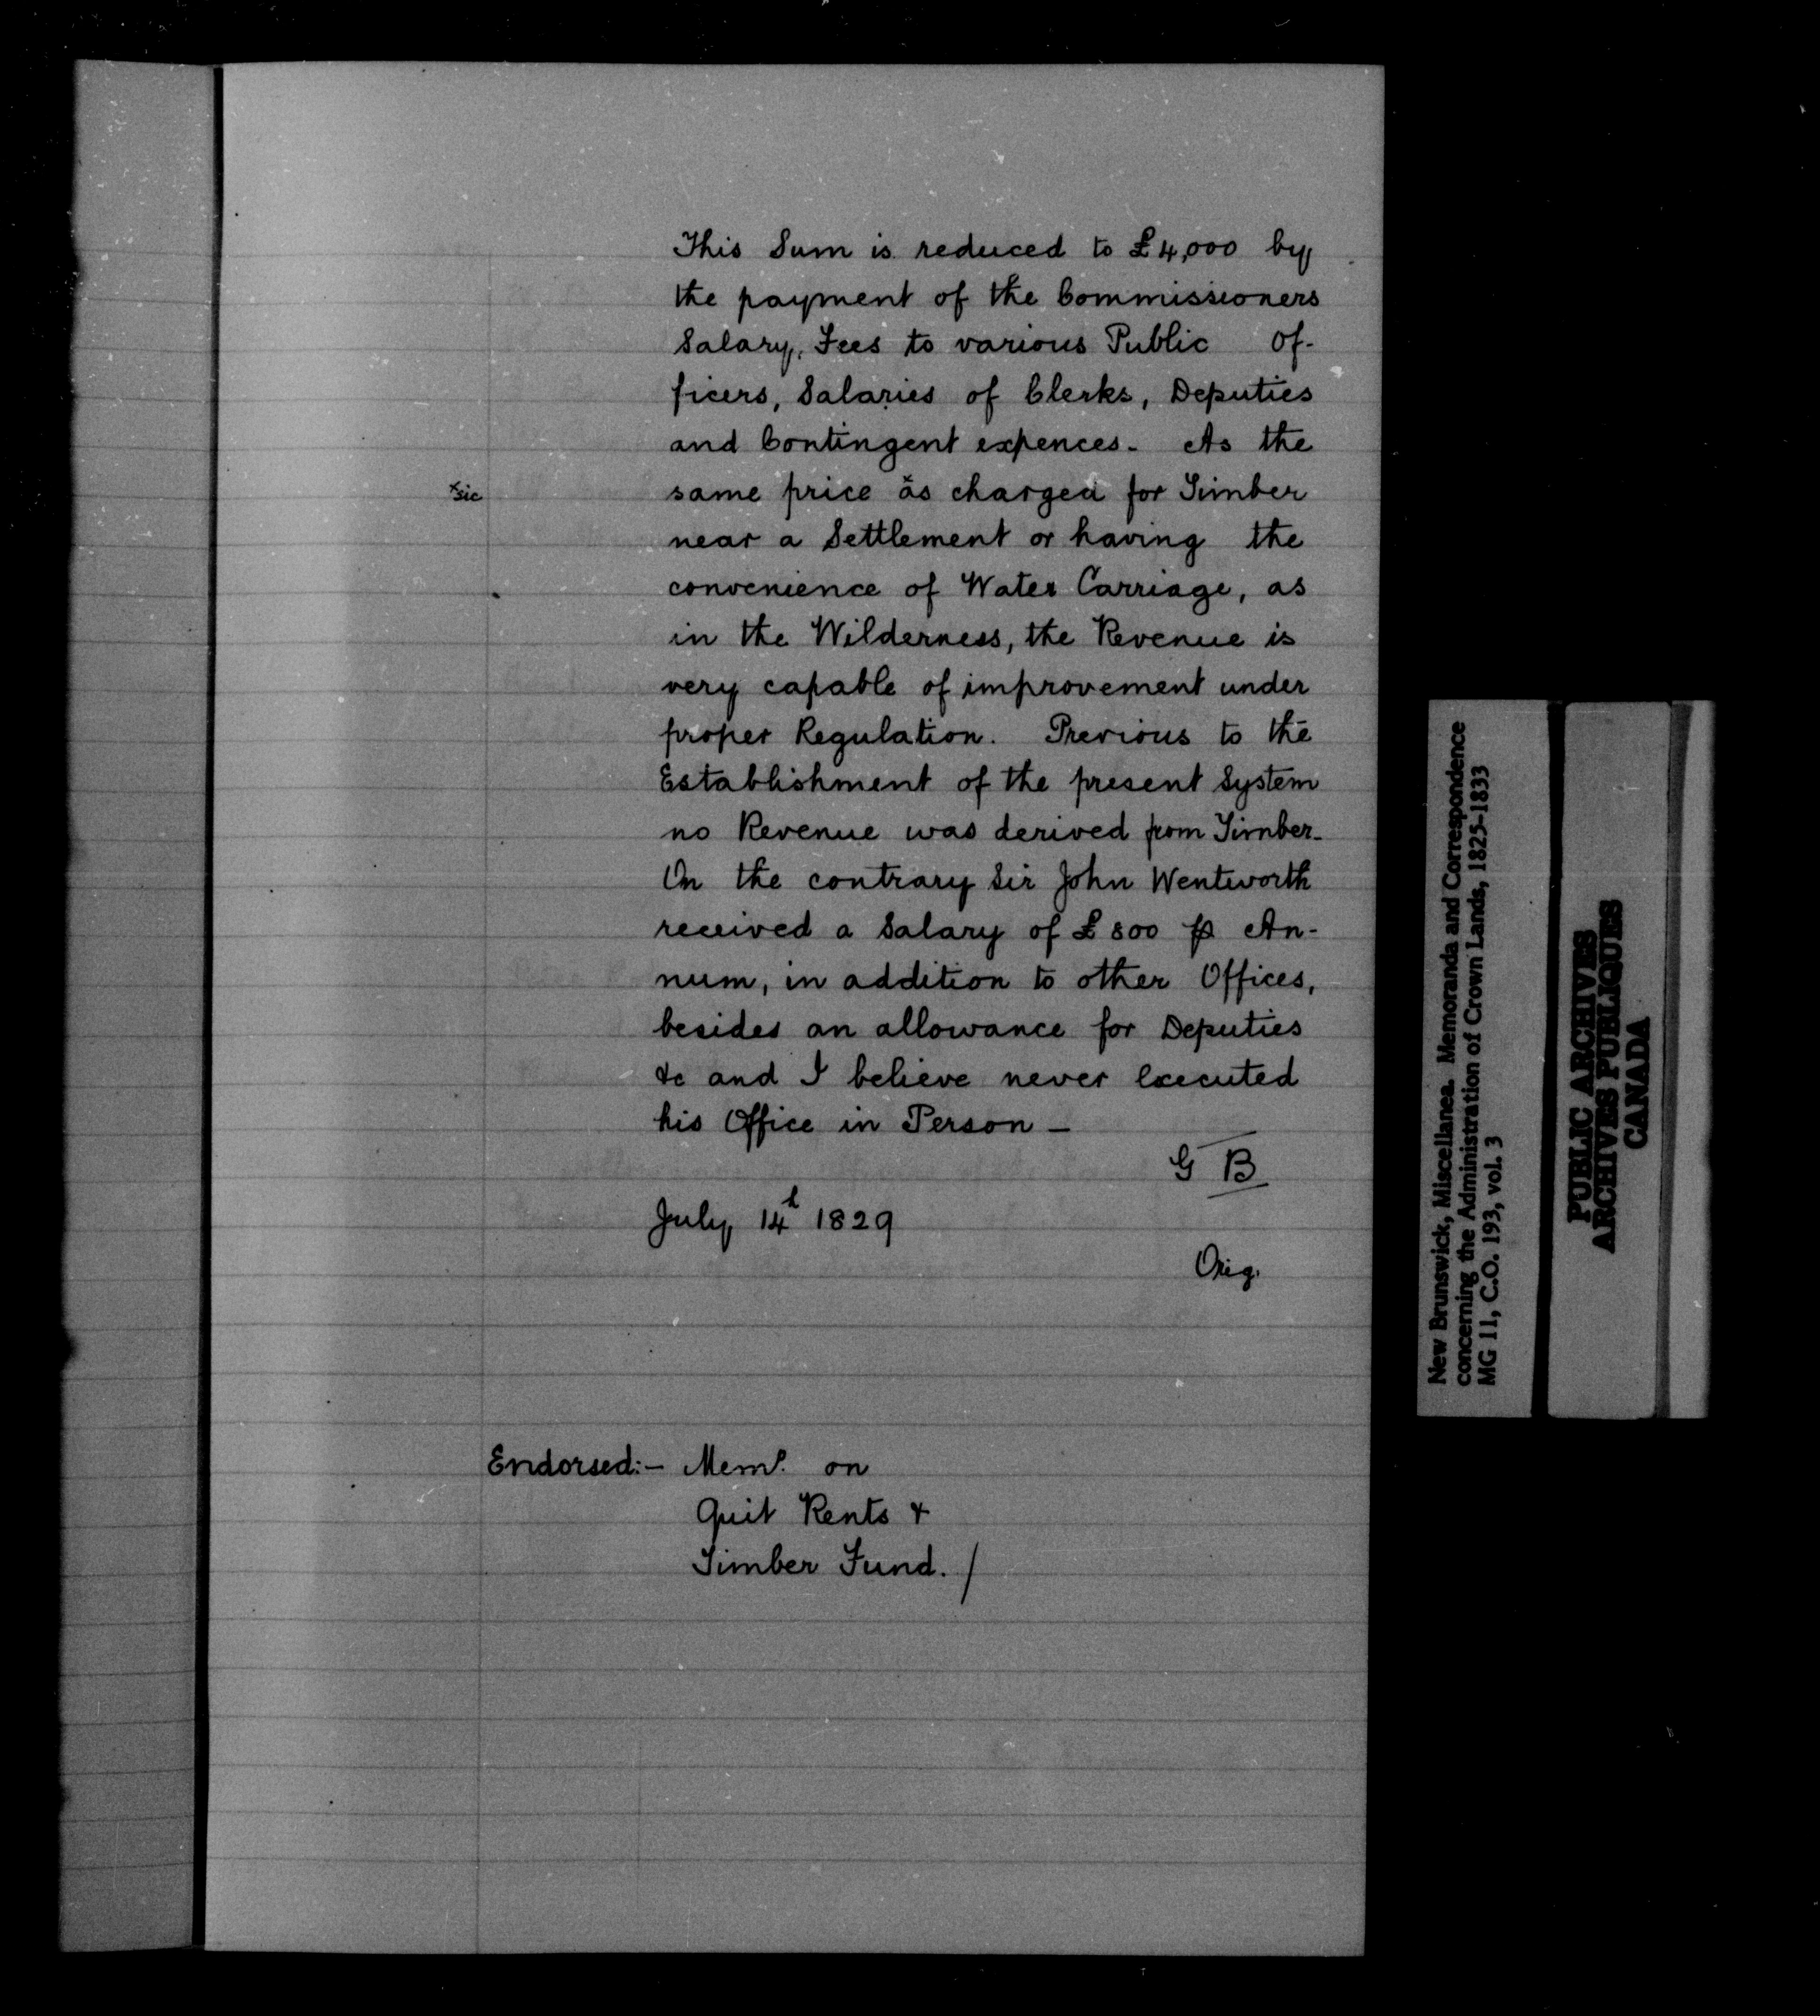 This Sum is reduced to £4,000 by
the payment of the Commissioners
Salary, Fees to various Public Of-
ficers, Salaries of Clerks, Deputies
and Contingent expences - As the
xsic
same price xas charged for Timber
near a Settlement or having the
convenience of Water Carriage, as
in the Wilderness, the Revenue is
very capable of improvement under
proper Regulation. Previous to the
Establishment of the present System
no Revenue was derived from Timber -
On the contrary Sir John Wentworth
received a Salary of £800 ⅌ An-
num, in addition to other Offices,
besides an allowance for Deputies
&c and I believe never executed
his Office in Person —
G B
July 14h 1829
Orig.
Endorsed:- Memo. on
Quit Rents &
Timber Fund. /
New Brunswick, Miscellanea. Memoranda and Correspondence
concerning the Administration of Crown Lands, 1825-1833
MG 11, C.O. 193, vol. 3
PUBLIC ARCHIVES
ARCHIVES PUBLIQUES
CANADA